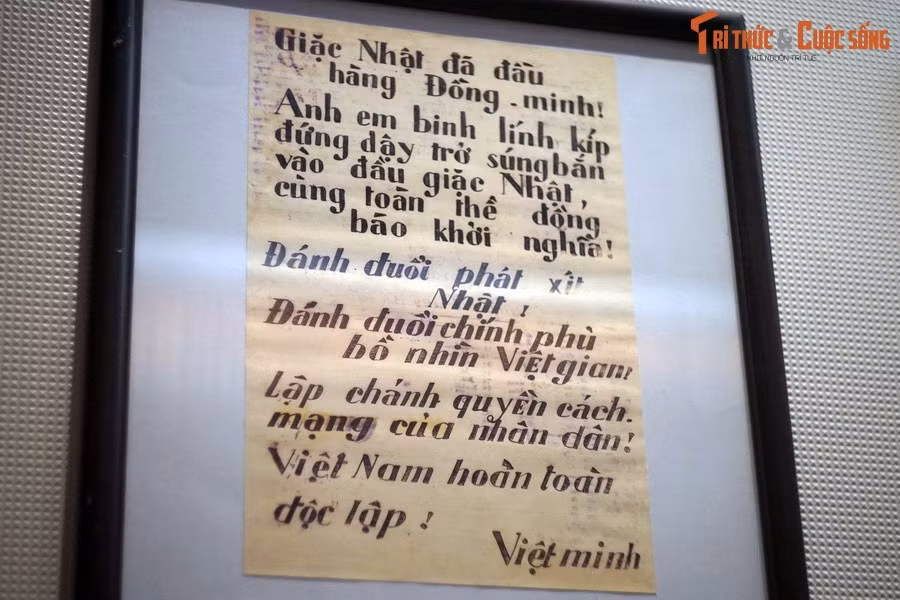 Giặc Nhật đã đầu
hàng Đồng-minh!
Anh em binh lính kíp
đứng dậy trở súng bắn
vào đầu giặc Nhật,
cùng toàn thể đồng
bào khởi nghĩa!
Đánh đuổi phát xít
Nhật!
Đánh đuổi chính phủ
bồ nhìn Việt gian!
Lập chánh quyền cách-
mạng của nhân dân!
Việt Nam hoàn toàn
độc lập!
Việt minh
TRI THỨC & CUỘC SỐNG
KHƠI NGUỒN TRI TUỆ